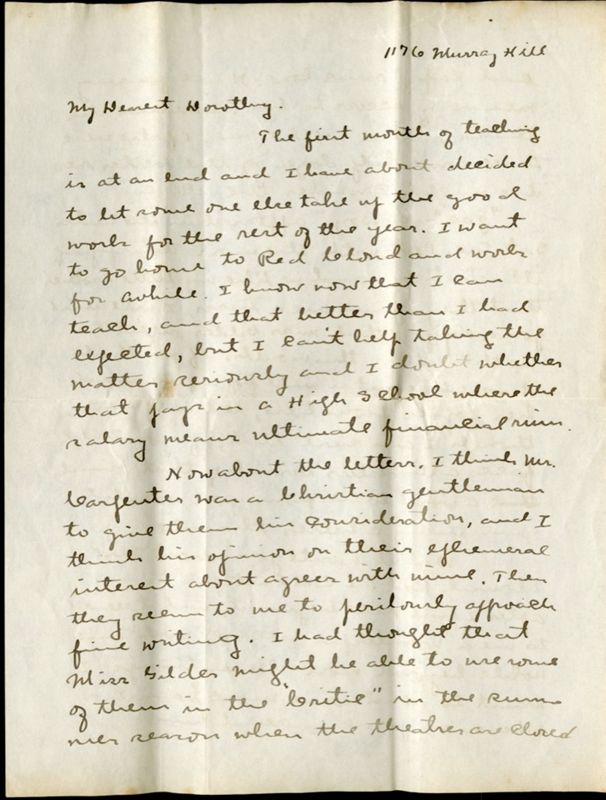 1176 Murray Hill
My Dearest Dorothy.
The first month of teaching
is at an end and I have about decided
to let some one else take up the good
work for the rest of the year. I want
to go home to Red Cloud and work
for awhile. I know now that I can
teach, and that better than I had
expected, but I can't help taking the
matter seriously and I doubt whether
that pays in a High School where the
salary means ultimate financial ruin.
Now about the letters. I think Mr.
Carpenter was a Christian gentleman
to give them his consideration, and I
think his opinion on their ephemeral
interest about agrees with mine. Then
they seem to me to perilously approach
fine writing. I had thought that
Miss Gilder might be able to use some
of them in the "Critic" in the sum
mer season when the theatres are closed